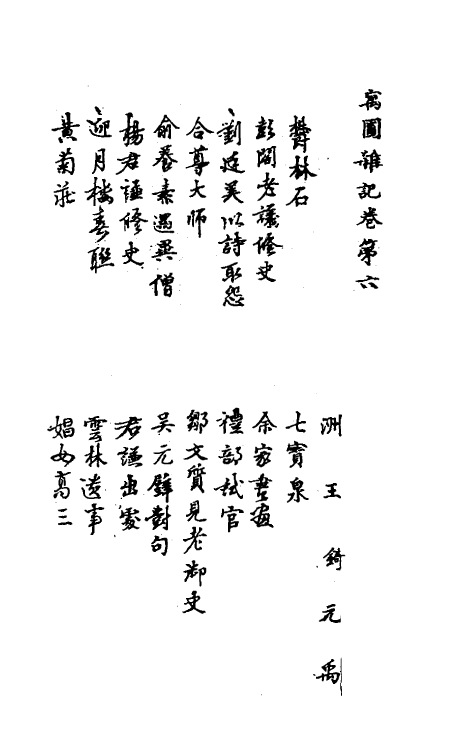 寓圃雜記卷第六
洲王錡元禹
鬱林石
七寶泉
彭閣老議修史
余家書畫
劉廷美以詩取怨
禮部試官
合尊大师
鄒文質見老御史
俞養素遇異僧
吴元璧對句
楊君謙修史
君謙出處
迎月樓春聯
雲林遺事
黄菊莊
娼女高三